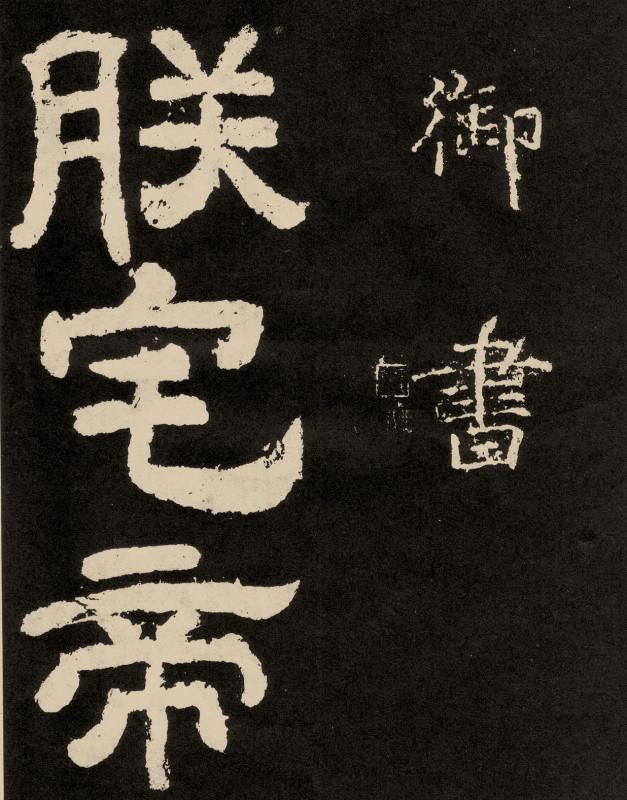 御書
朕宅帝